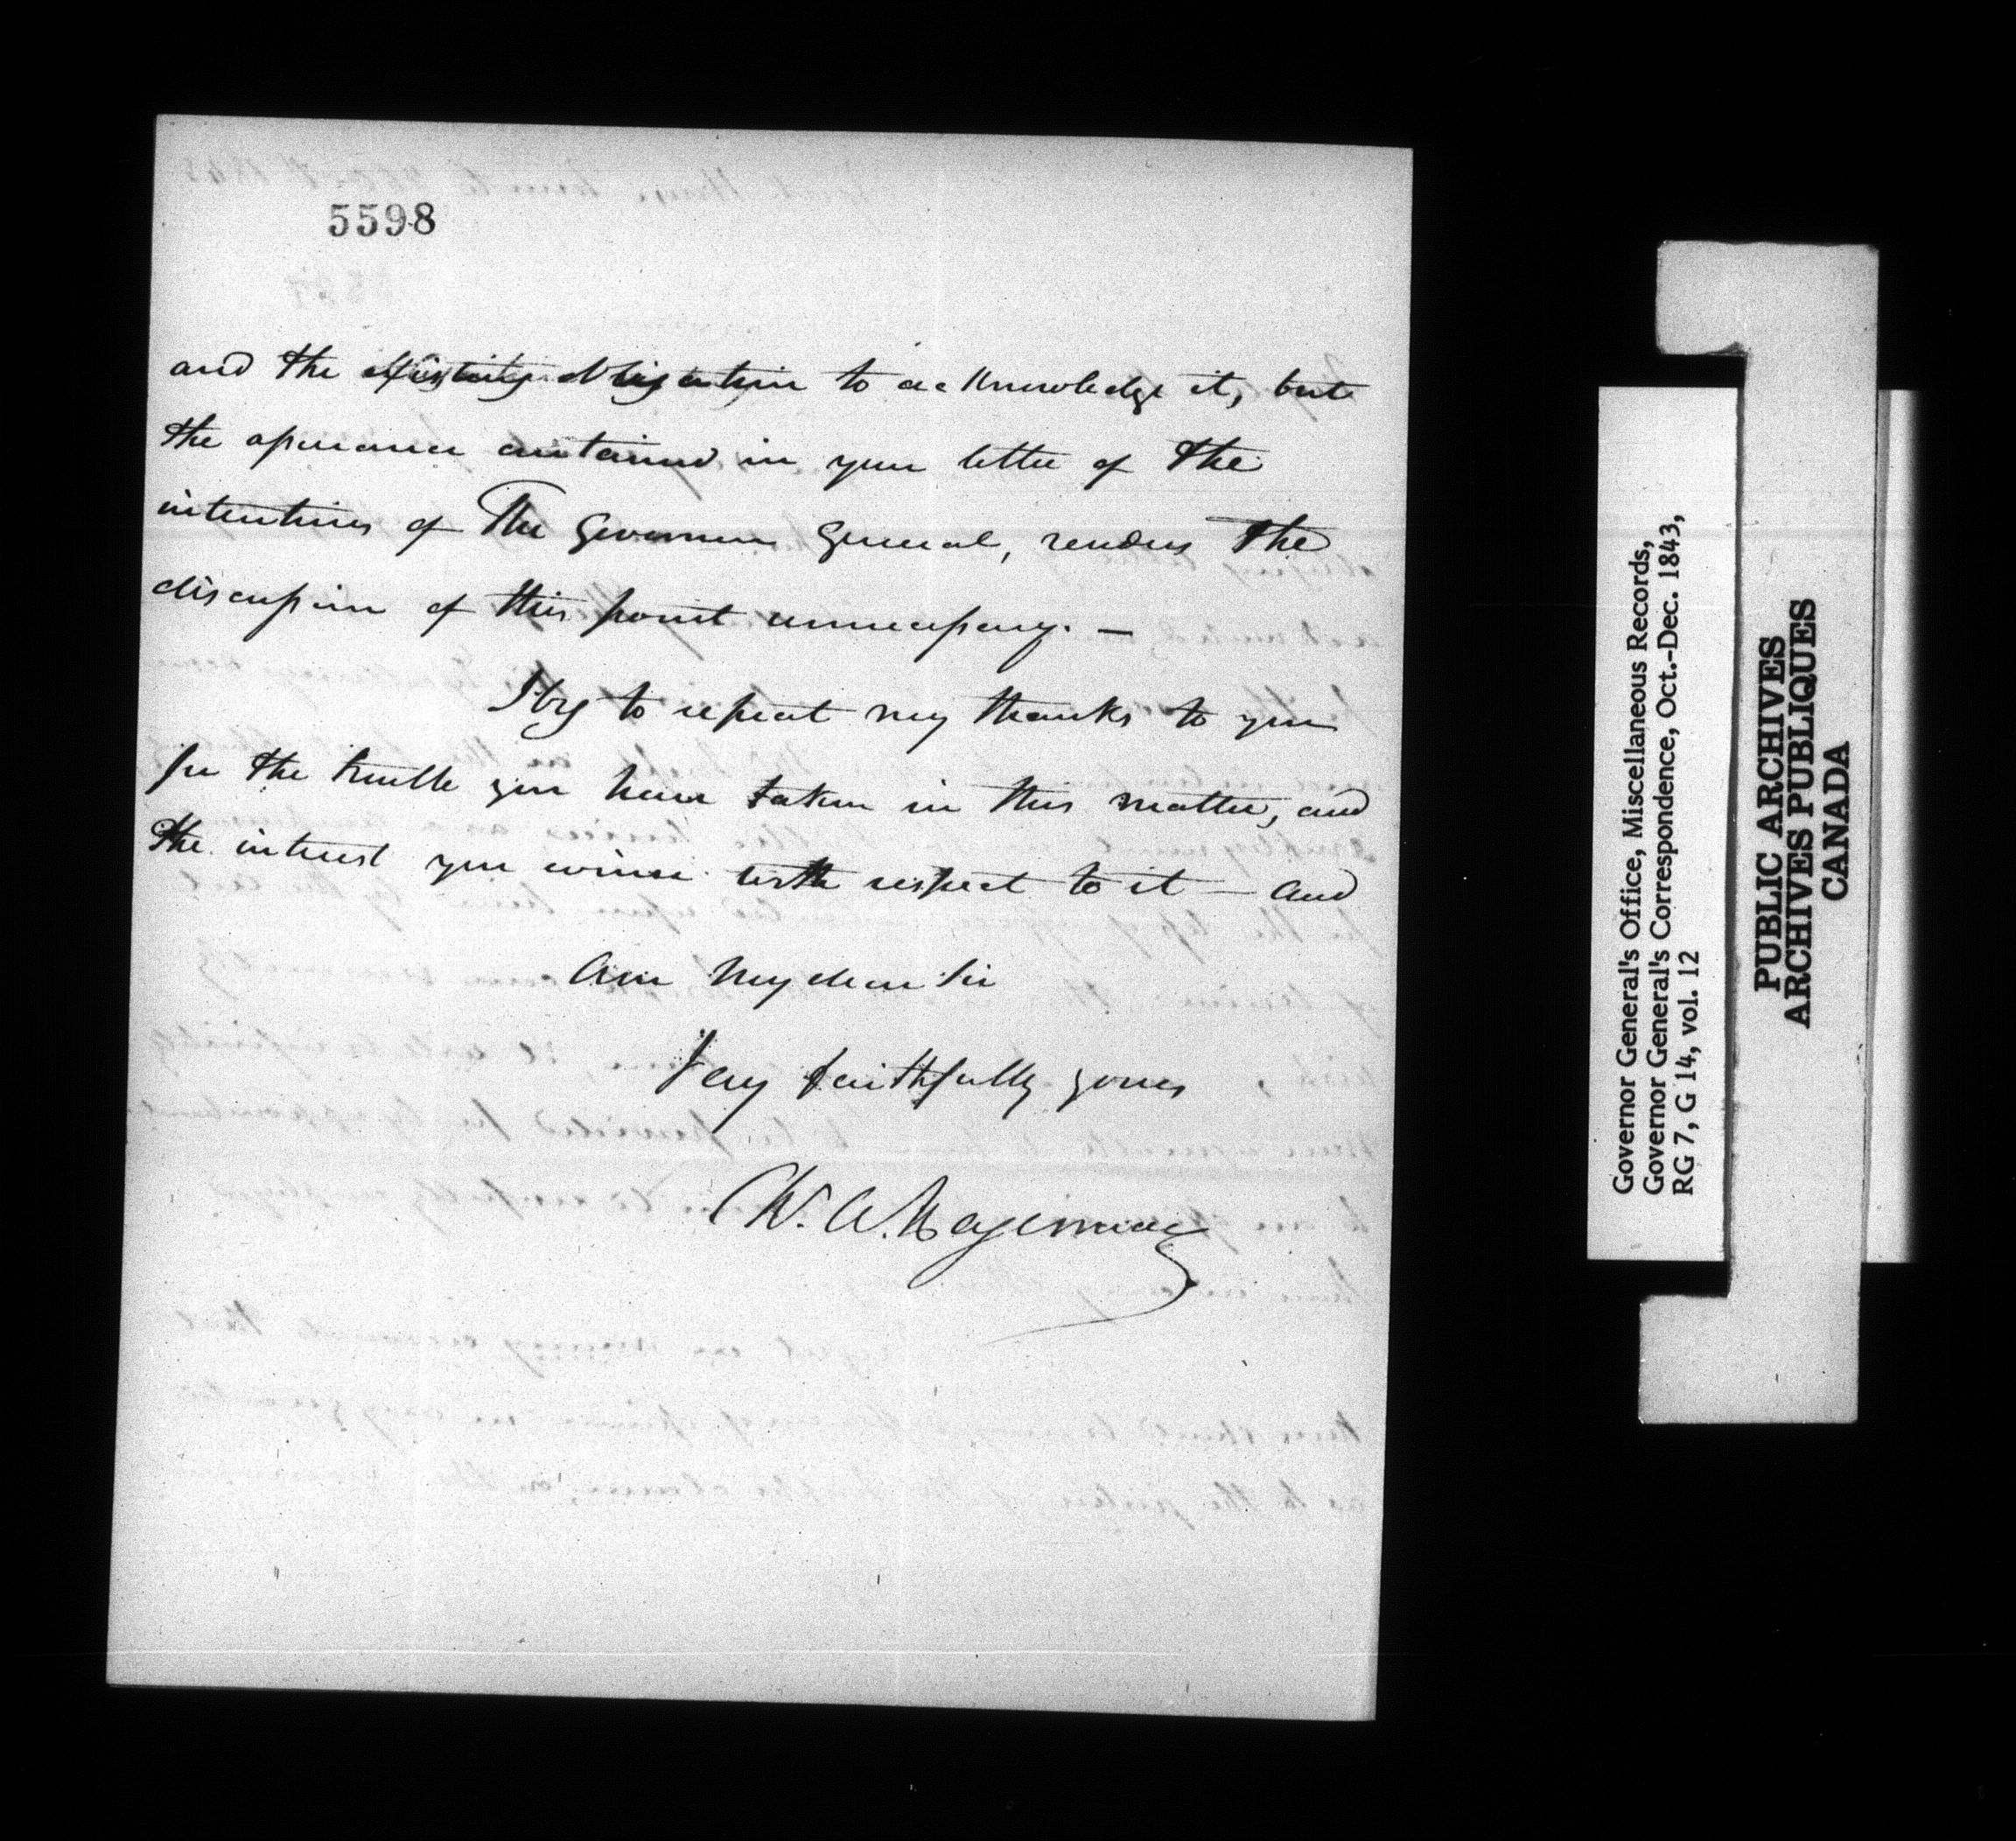 5598
and the existing obligation to acknowledge it, but
the assurance contained in your letter of the
intentions of The Governor General, renders the
discussion of this point unnecessary. —
I beg to repeat my thanks to you
for the trouble you have taken in this matter, and
the interest you evince with respect to it — and
am My dear Sir
Very faithfully yours
C. A. Hagerman
Governor General's Office, Miscellaneous Records,
Governor General's Correspondence, Oct.-Dec. 1843,
RG 7, G 14, vol. 12
PUBLIC ARCHIVES
ARCHIVES PUBLIQUES
CANADA